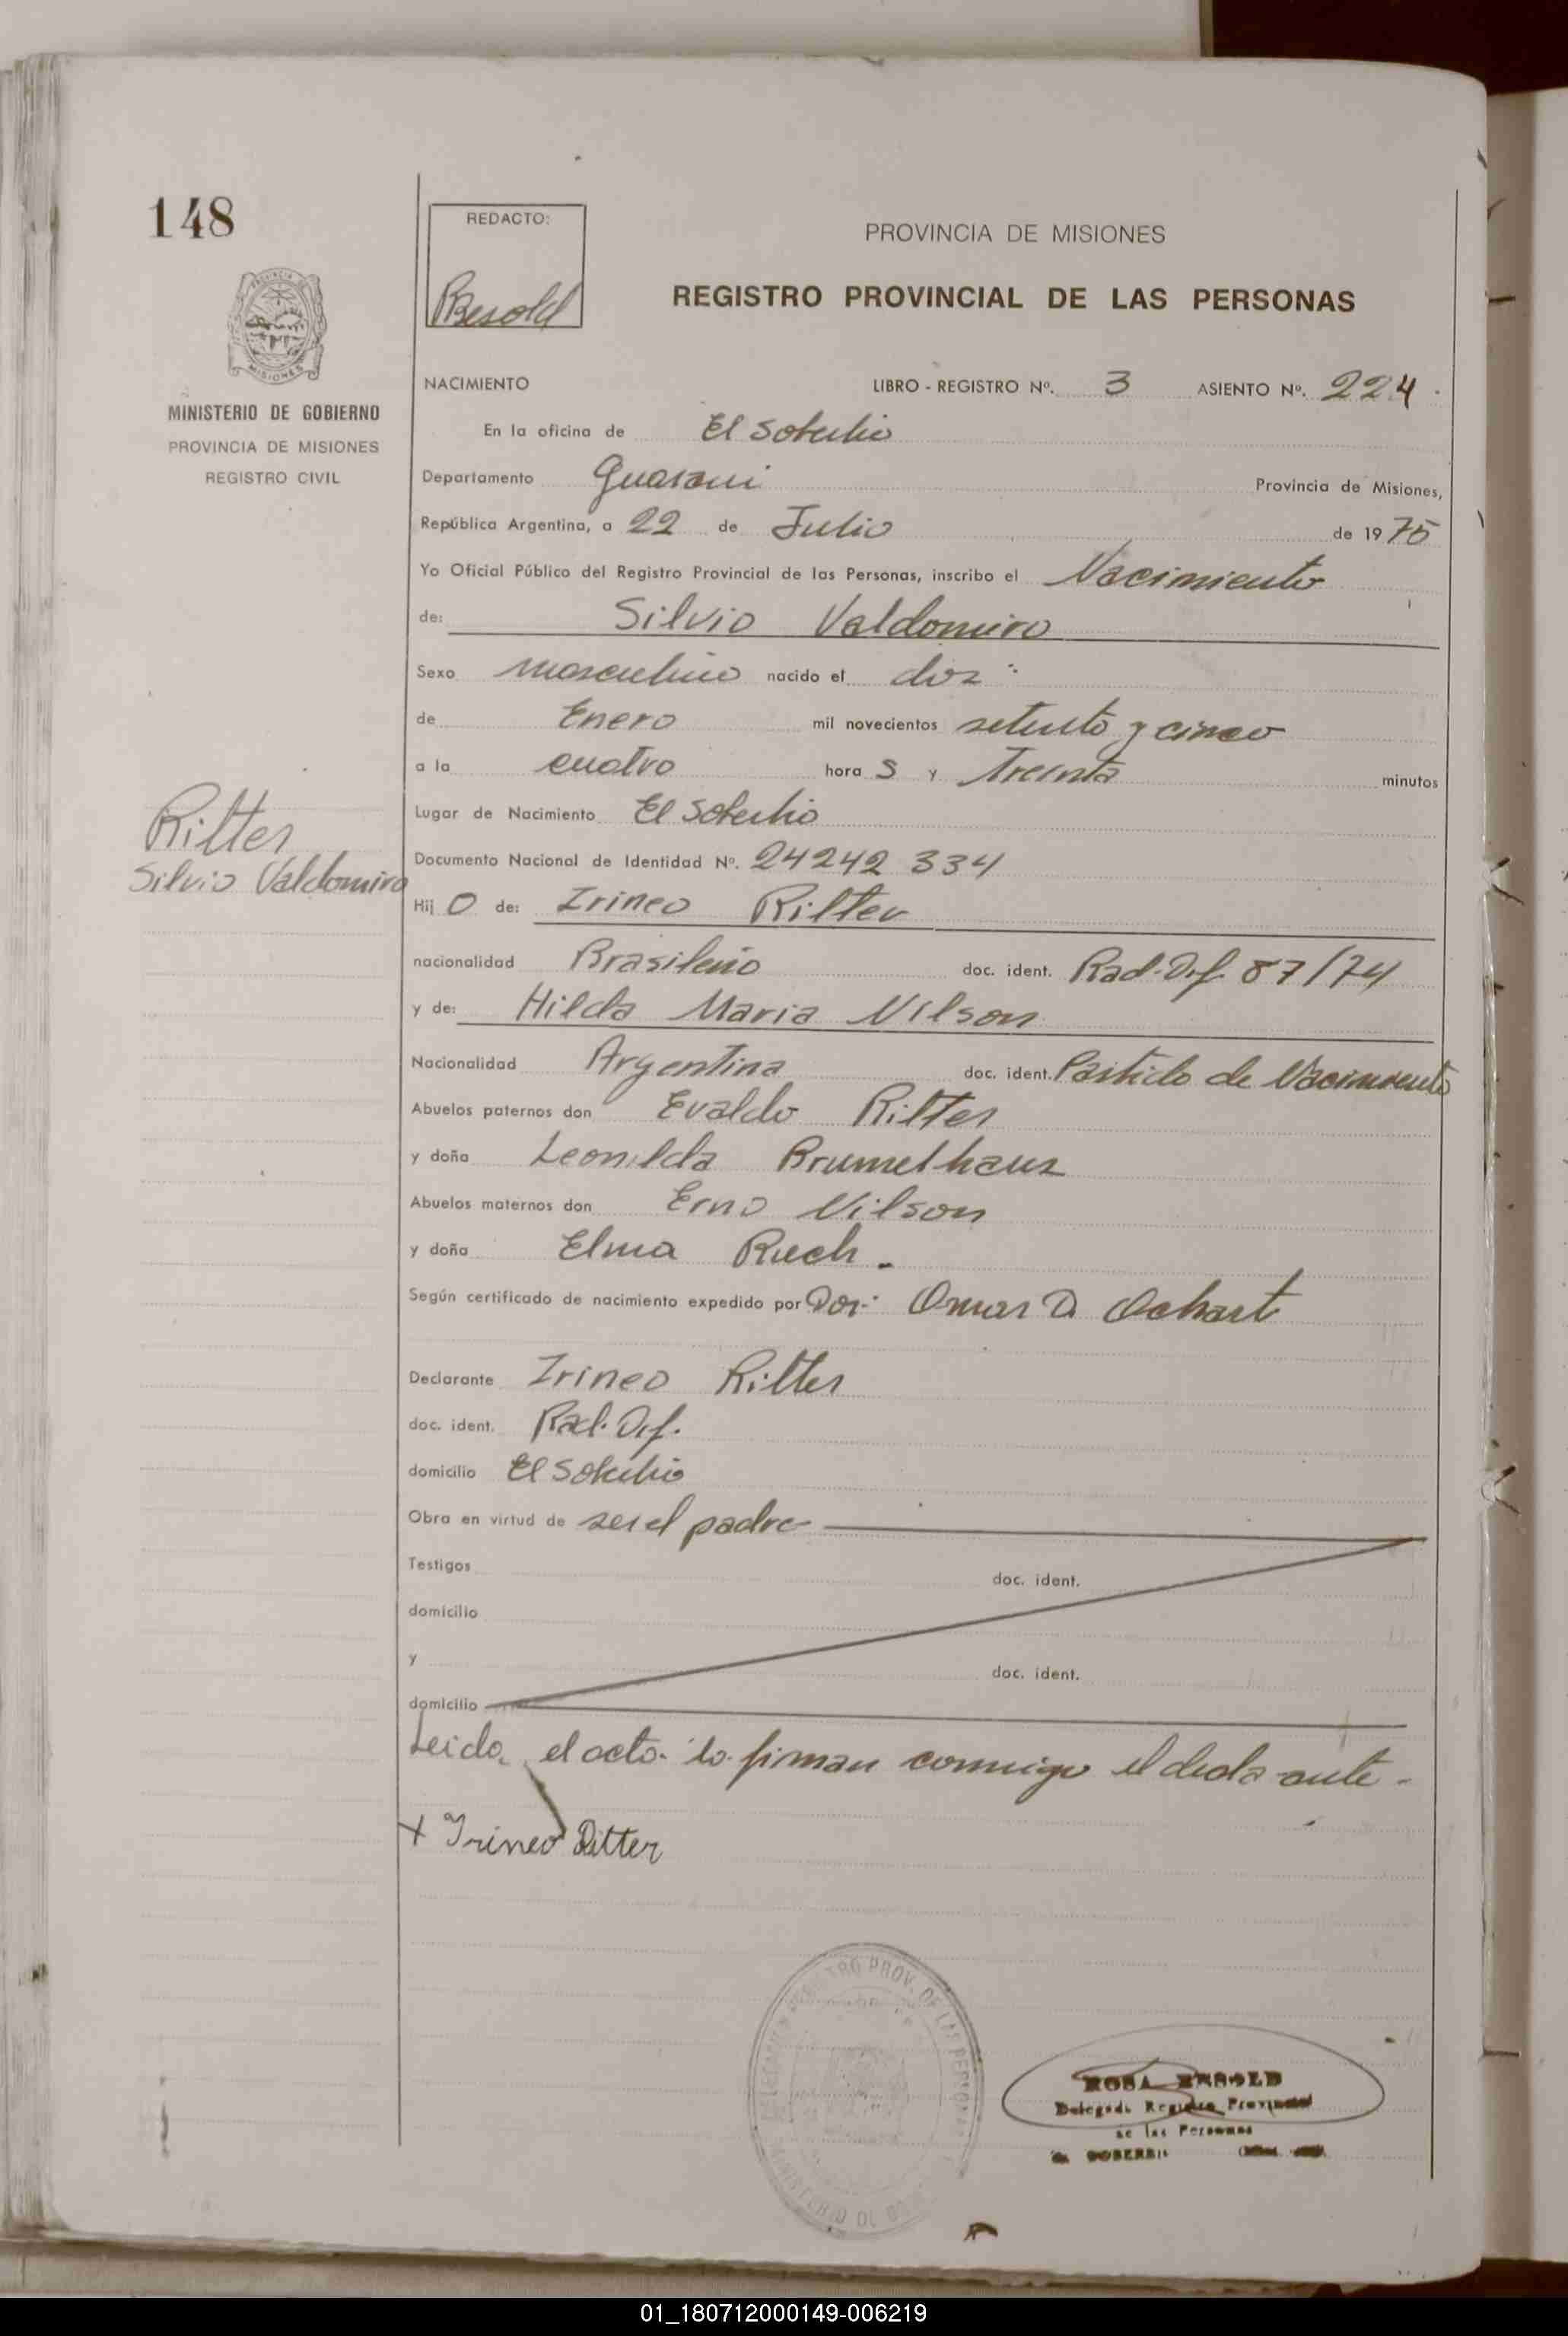 148
REDACTO:
Besold
PROVINCIA DE MISIONES
REGISTRO PROVINCIAL DE LAS PERSONAS
MISIONES
MINISTERIO DE GOBIERNO
PROVINCIA DE MISIONES
REGISTRO CIVIL
NACIMIENTO LIBRO - REGISTRO Nº. 3 ASIENTO Nº. 224
En la oficina de El Soberbio
Departamento Guarani Provincia de Misiones,
República Argentina, a 22 de Julio de 1975
Yo Oficial Público del Registro Provincial de las Personas, inscribo el Nacimiento
de: Silvio Valdomiro
Sexo masculino nacido el dos
de Enero mil novecientos setenta y cinco
a la cuatro hora s y Treinta minutos
Lugar de Nacimiento El Soberbio
Ritter
Silvio Valdomiro
Documento Nacional de Identidad Nº. 24242 334
Hij o de: Irineo Ritter
nacionalidad Brasileño doc. ident. Rad. Dif. 87/74
y de: Hilda Maria Nilson
Nacionalidad Argentina doc. ident. Partida de Nacimiento
Abuelos paternos don Evaldo Ritter
y doña Leonilda Brumelhaus
Abuelos maternos don Erno Nilson
y doña Elma Ruch.
Según certificado de nacimiento expedido por Dor: Omar D. Ochart
Declarante Irineo Ritter
doc. ident. Rad. Dif.
domicilio El Soberbio
Obra en virtud de ser el padre
Testigos doc. ident.
domicilio
y doc. ident.
domicilio
Leida el acta lo firman conmigo el declarante -
+ Irineo Ritter
REGISTRO PROV. DE LAS PERSONAS
ROSA BESOLD
Delegada Registro Provincial
de las Personas
SOBERBIO
01_180712000149-006219